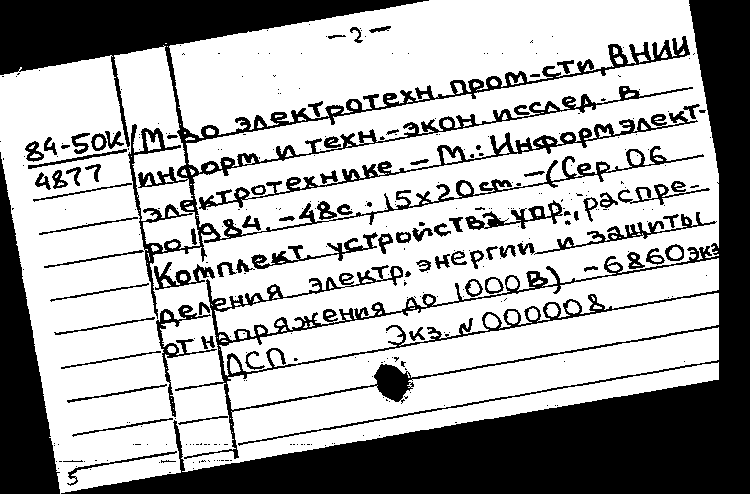 -2-
84-50к/М-во электротехн. пром-сти, ВНИИ
4877 информ. и техн.-экон. исслед. в
электротехнике. - М.: Информэлект-
ро, 1984. - 48с.; 15х20cm. - (Сер. 06
Комплект. устройства упр., распре-
деления электр. энергии и защиты
от напряжения до 1000В). - 6860экз
ДСП. Экз. N000008.
5